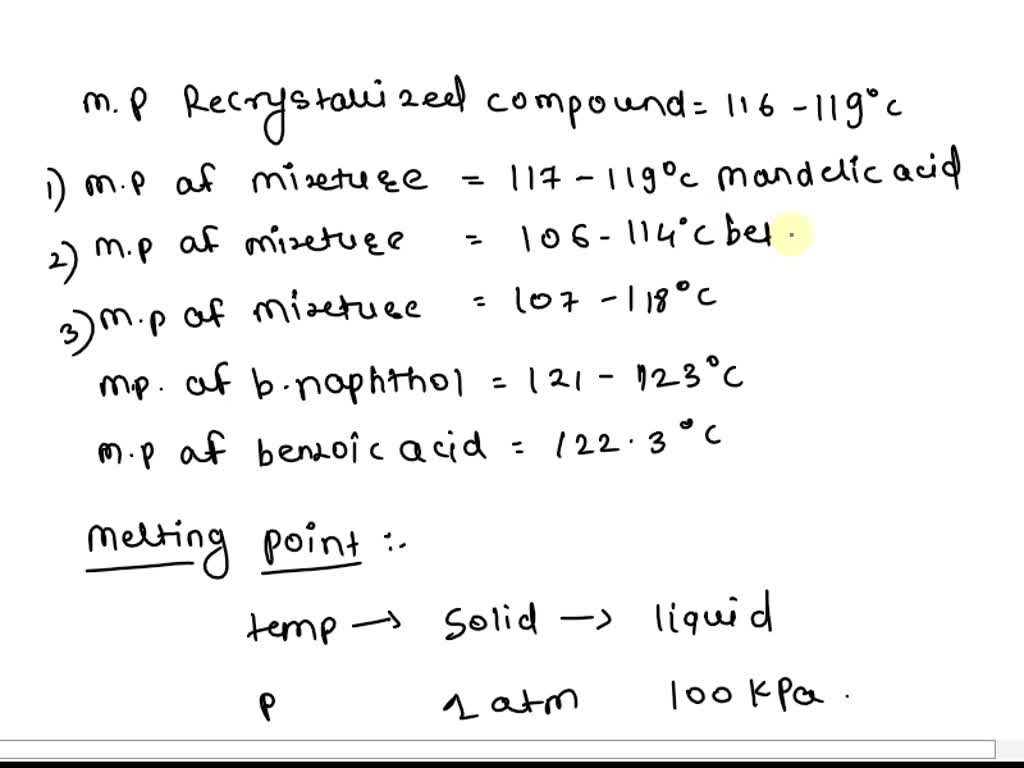 m.p Recrystallized compound = 116 - 119°c
1) m.p of mixture = 117 - 119°c mandelic acid
2) m.p of mixture = 106 - 114°c be
3) m.p of mixture = 107 - 118°c
mp. of b.naphthol = 121 - 123°c
m.p of benzoic acid = 122.3°c
Melting point :-
temp → solid → liquid
P 1 atm 100 kPa.